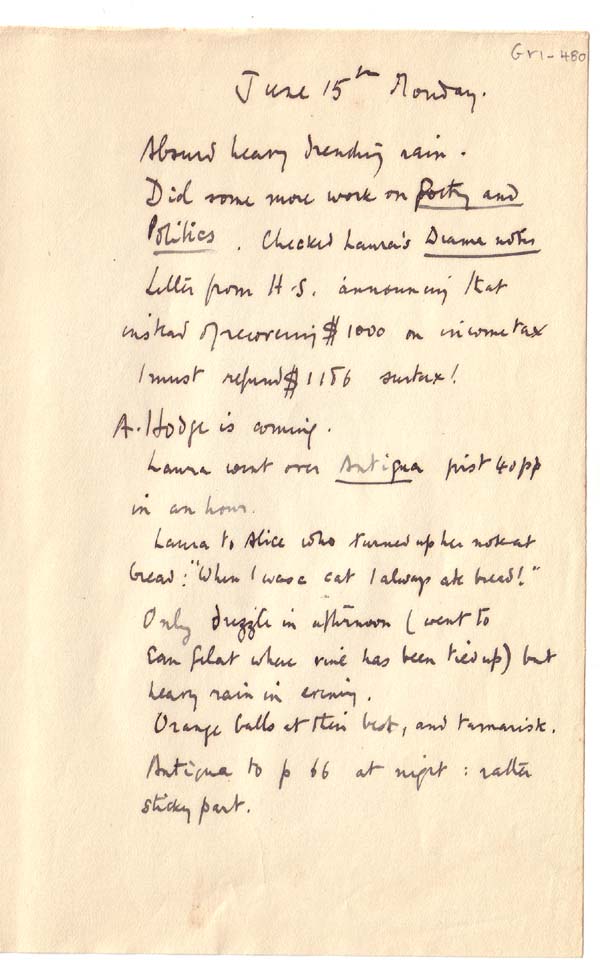 Gri-480
June 15th Monday.
Absurd heavy drenching rain.
Did some more work on Poetry and
Politics. Checked Laura's Drama notes
Letter from H.S. announcing that
instead of recovering $1000 on income tax
I must refund $1186 surtax!
A. Hodge is coming.
Laura went over Antigua first 40pp
in an hour.
Laura to Alice who turned up her nose at
bread: "When I was a cat I always ate bread!"
Only drizzle in afternoon (went to
Can Gelat where vine has been tied up) but
heavy rain in evening.
Orange balls at their best, and tamarisk.
Antigua to p 66 at night: rather
sticky part.